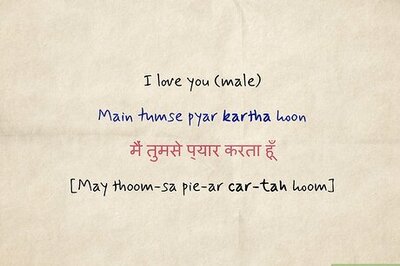 I love you (male)
Main tumse pyar kartha hoon
मैं तुमसे प्यार करता हूँ
[May thoom-sa pie-ar car-tah hoom]